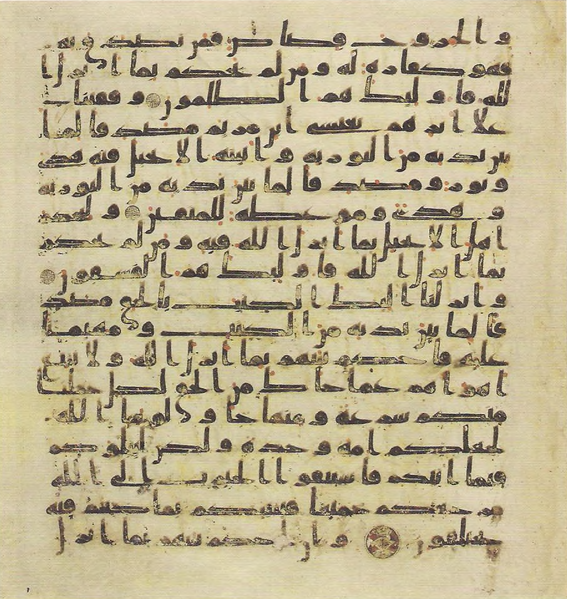 والجروح قصاص فمن تصدق به
فهو كفارة له ومن لم يحكم بما انزل ا
لله فاولئك هم الظلمون وقفينا
على اثرهم بعيسى ابن مريم مصدقا لما
بين يديه من التورية واتينه الانجيل فيه هدى
ونور ومصدقا لما بين يديه من التورية
وهدى وموعظة للمتقين وليحكم
اهل الانجيل بما انزل الله فيه ومن لم يحكم
بما انزل الله فاولئك هم الفسقون
وانزلنا اليك الكتب بالحق مصد
قا لما بين يديه من الكتب ومهيمنا
عليه فاحكم بينهم بما انزل الله ولا تتبع
اهواهم عما جاك من الحق لكل جعلنا
منكم شرعة ومنهاجا ولو شا الله
لجعلكم امة وحدة ولكن ليبلوكم
فيما اتيكم فاستبقوا الخيرت الى الله
مرجعكم جميعا فينبئكم بما كنتم فيه
تختلفون وان احكم بينهم بما انزل